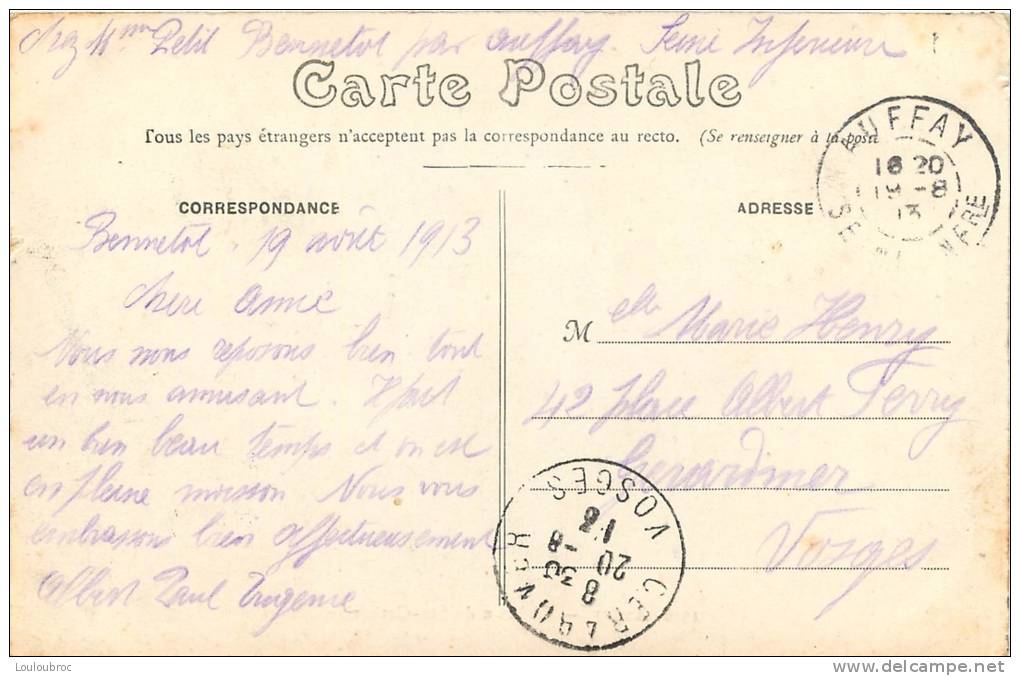 chez Mme Petit Bennetot par Auffay. Seine Inférieure
Carte Postale
Tous les pays étrangers n'acceptent pas la correspondance au recto. (Se renseigner à la poste
CORRESPONDANCE
Bennetot, 19 août 1913
chère amie
Nous nous reposons bien tout
en nous amusant. Il fait
un bien beau temps et on est
en pleine moisson Nous vous
embrassons bien affectueusement
Albert Paul Eugenie
ADRESSE
AUFFAY
16 20
19 -8
13
SEINE INFRE
Melle Marie Henry
42 place Albert Ferry
Gérardmer
Vosges
GERARDMER
8 30
20 -8
13
VOSGES
Louloubroc
delcampe.net